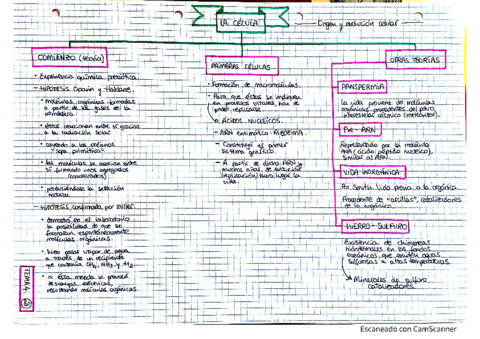 LA CÉLULA
Origen y evolución celular
COMIENZO (teoría)
• Experiencia química prebiótica.
- HIPÓTESIS Oparin y Haldane:
• moléculas orgánicas formadas
a partir de los gases de la
atmósfera.
• éstas reaccionan entre sí gracias
a la radiación solar
• cayendo a los océanos
"sopa primitiva"
• las moléculas se asocian entre
sí formando unos agregados
(coacervados)
• produciéndose la selección
natural.
- HIPÓTESIS confirmada por Miller:
• demostró en el laboratorio
la posibilidad de que se
formaran espontáneamente
moléculas orgánicas.
• hizo pasar vapor de agua
a través de un recipiente
que contenía CH4, NH3 y H2.
• a esta mezcla le provocó
descargas eléctricas,
resultando moléculas orgánicas.
TEMA 4
PRIMERAS CÉLULAS
• Formación de macromoléculas.
• Para que éstas se impliquen
en procesos vitales, han de
poder replicarse.
→ ÁCIDOS NUCLEICOS.
- ARN enzimático: RIBOZIMA.
- Constituyó el primer
sistema genético.
- A partir de dicho ARN y
muchos años de evolución
(replicación) tuvo lugar la
vida.
OTRAS TEORÍAS
PANSPERMIA
La vida proviene de moléculas
orgánicas procedentes del polvo
interestelar cósmico (meteoritos).
Pre-ARN
Representado por la molécula
PNA (ácido péptido nucleico),
similar al ARN.
VIDA INORGÁNICA
Por Smith. Vida previa a la orgánica.
Procedente de "arcillas", catalizadores
de lo orgánico.
HIERRO-SULFURO
Existencia de chimeneas
hidrotermales en los fondos
oceánicos que emiten aguas
sulfurosas a altas temperaturas.
→ Minerales de sulfuro
catalizadores.
Escaneado con CamScanner